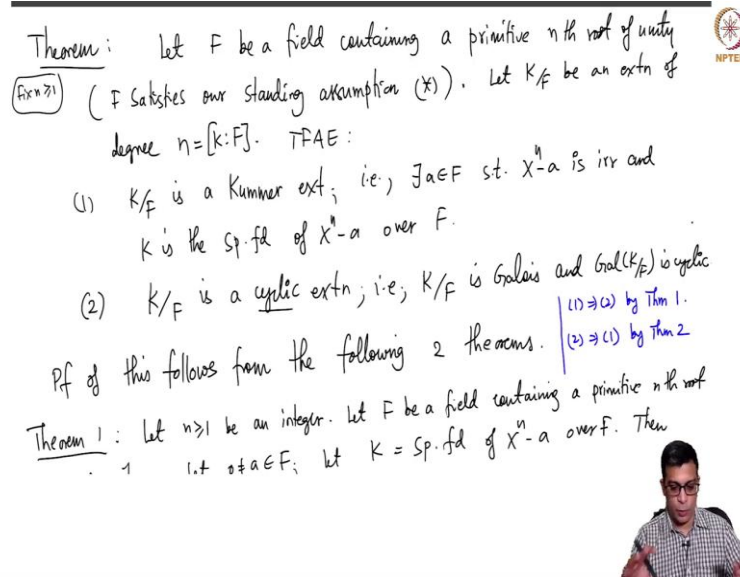 Theorem : Let F be a field containing a primitive n th root of unity
NPTE
Fix n≥1 ( F satisfies our standing assumption (*) ) . Let K/F be an extn of
degree n = [K:F]. TFAE :
(1) K/F is a Kummer ext ; i.e., ∃ a ∈ F s.t. xⁿ-a is irr and
K is the sp. fd of xⁿ-a over F.
(2) K/F is a cyclic extn ; i.e., K/F is Galois and Gal(K/F) is cyclic
(1) ⇒ (2) by Thm 1.
Pf of this follows from the following 2 theorems.
(2) ⇒ (1) by Thm 2
Theorem 1 : Let n≥1 be an integer. Let F be a field containing a primitive n th root
Let 0≠a∈F; let K = sp. fd of xⁿ-a over F. Then